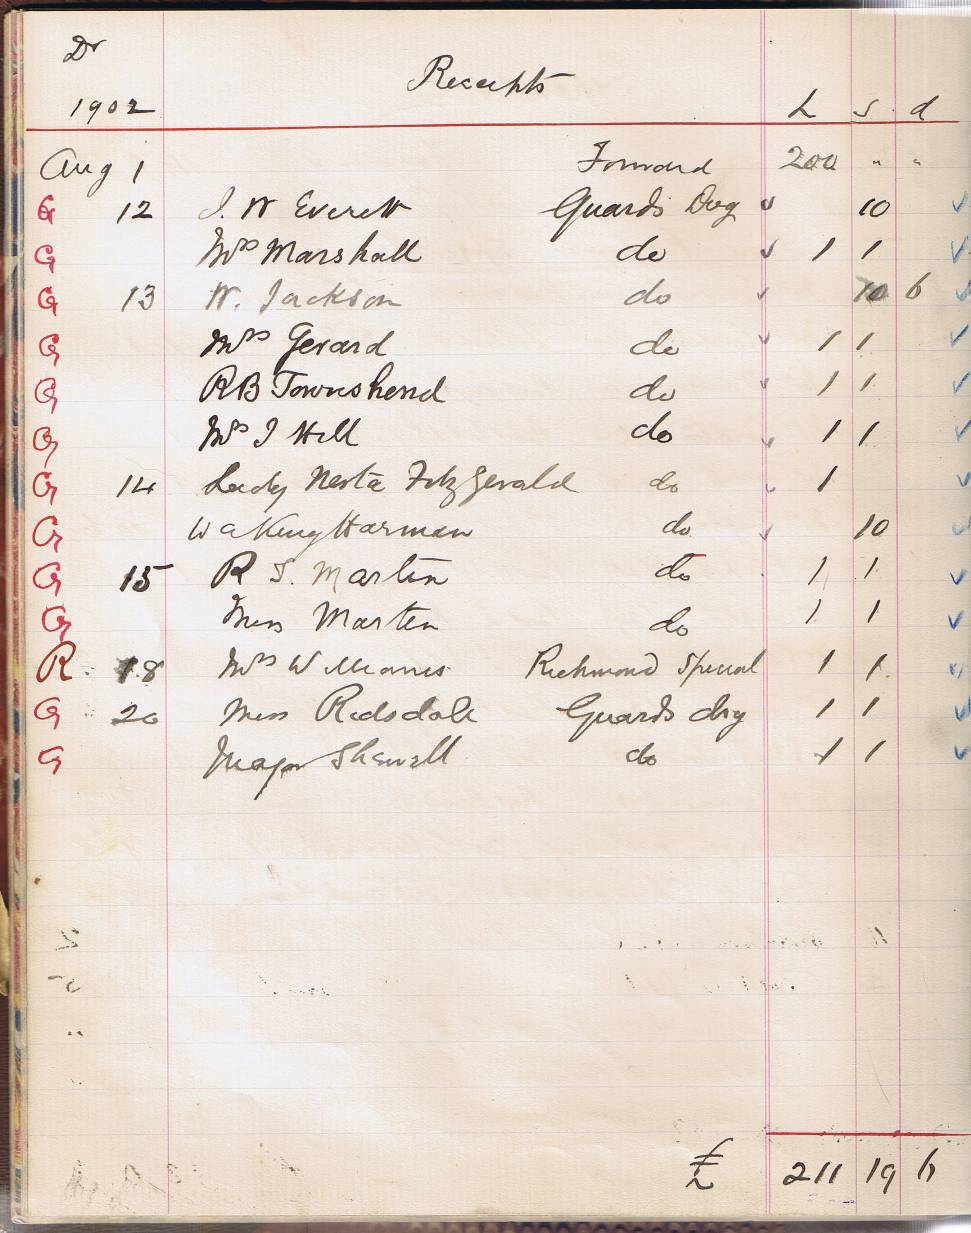 Dr
Receipts
1902 £ s d
Aug 1 Forward 200 " "
G 12 J. W Everett Guards Dug 10
G Mrs Marshall do 1 1
G 13 W. Jackson do 10 6
G Mrs Gerard do 1 1
G RB Townshend do 1 1
G Mrs J Hill do 1 1
G 14 Lady Nesta Fitzgerald do 1
G W a King Harman do 10
G 15 R S. Martin do 1 1
G Miss Martin do 1 1
R 18 Mrs Williams Richmond Special 1 1
G 20 Miss Ridsdale Guards dry 1 1
G Major Shewell do 1 1
£ 211 19 6